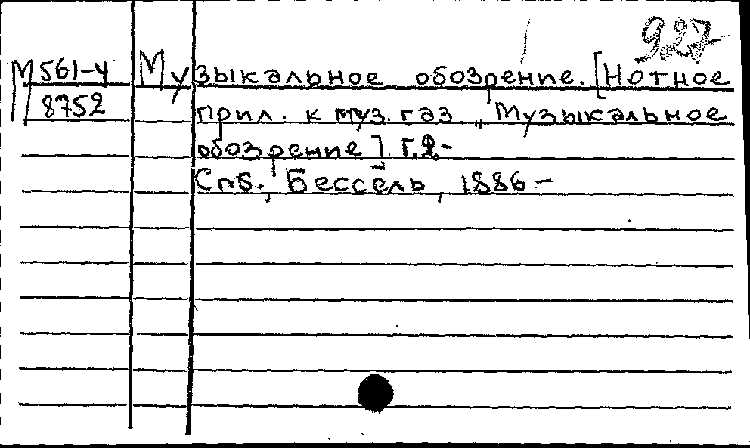 927
М 561-4 Музыкальное обозрение. [Нотное
8752 прил. к муз. газ. „Музыкальное
обозрение"] г.2-
Спб., Бессель, 1886-